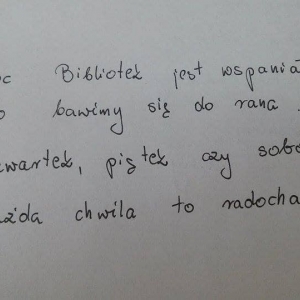 oc Bibliotek jest wspania
o bawimy się do rana
wartek, piątek czy sobo
ażda chwila to radocha